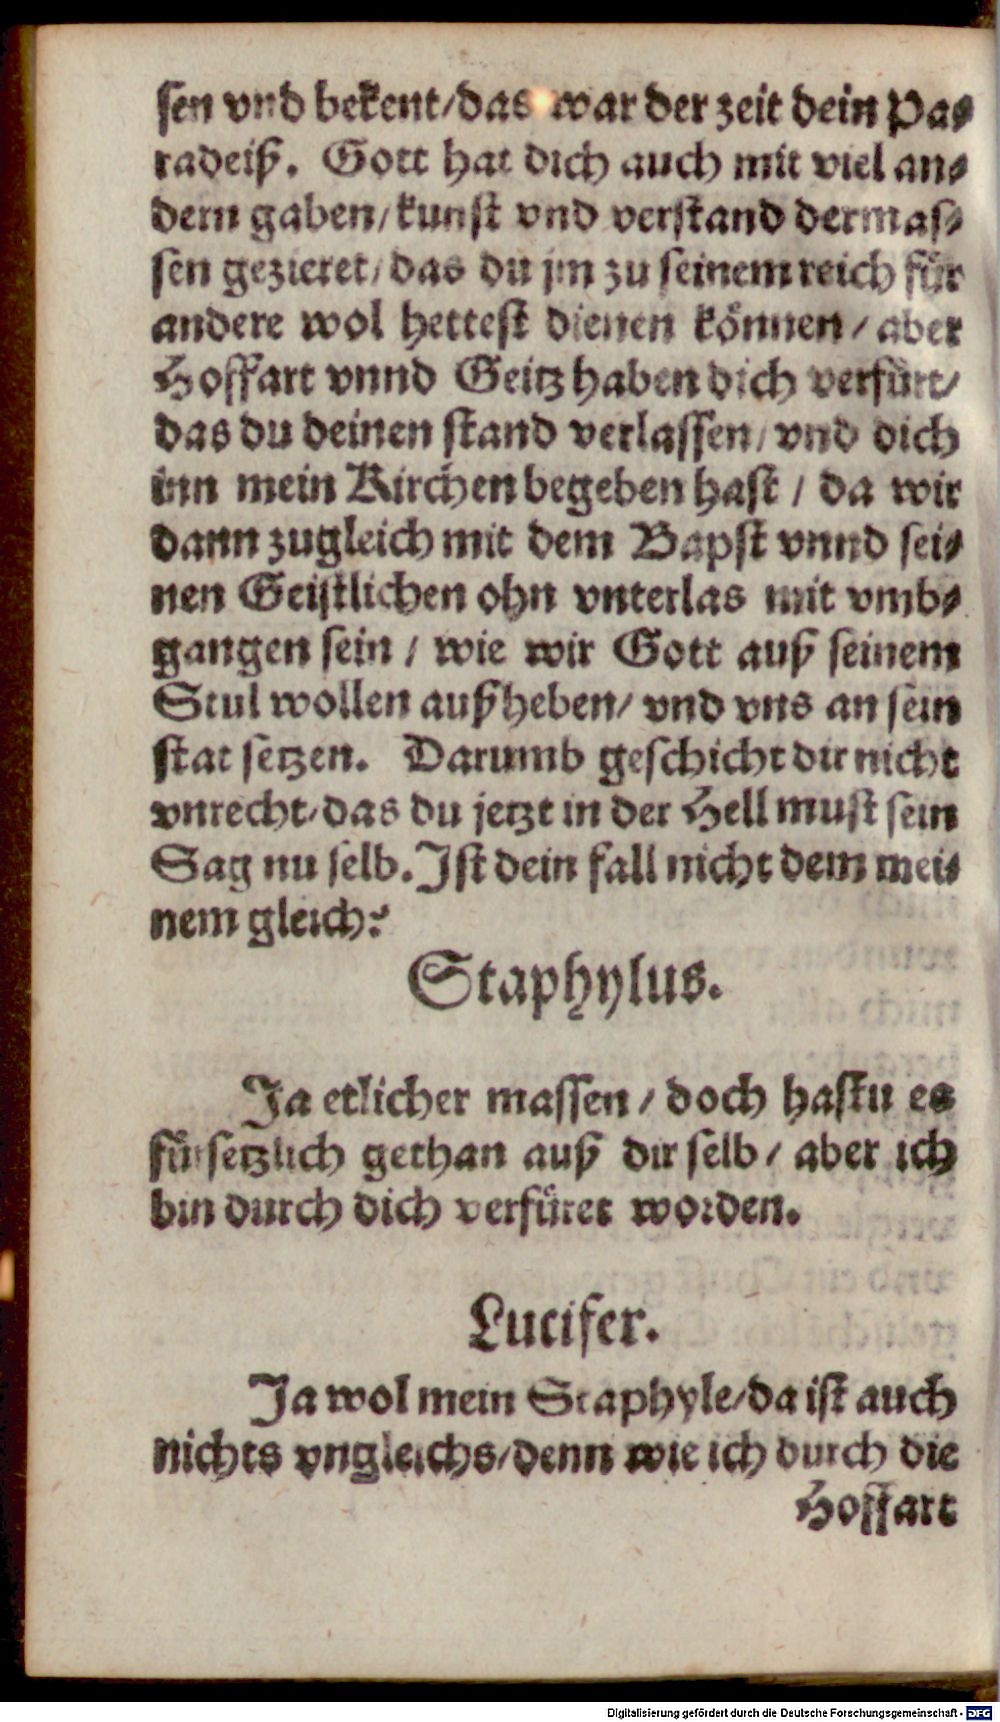 sen vnd bekent/das war der zeit dein Pa⸗
radeiß. Gott hat dich auch mit viel an⸗
dern gaben/kunst vnd verstand dermas⸗
sen gezieret/das du jm zu seinem reich für
andere wol hettest dienen können/aber
Hoffart vnnd Geitz haben dich verfürt/
das du deinen stand verlassen/vnd dich
inn mein Kirchen begeben hast / da wir
dann zugleich mit dem Bapst vnnd sei⸗
nen Geistlichen ohn vnterlas mit vmb⸗
gangen sein / wie wir Gott auß seinem
Stul wollen außheben/ vnd vns an sein
stat setzen. Darumb geschicht dir nicht
vnrecht/das du jetzt in der Hell must sein
Sag nu selb. Ist dein fall nicht dem mei⸗
nem gleich?
Staphylus.
Ja etlicher massen / doch hastu es
fürsetzlich gethan auß dir selb / aber ich
bin durch dich verfüret worden.
Lucifer.
Ja wol mein Staphyle/da ist auch
nichts vngleichs/denn wie ich durch die
Hoffart
Digitalisierung gefördert durch die Deutsche Forschungsgemeinschaft - DFG